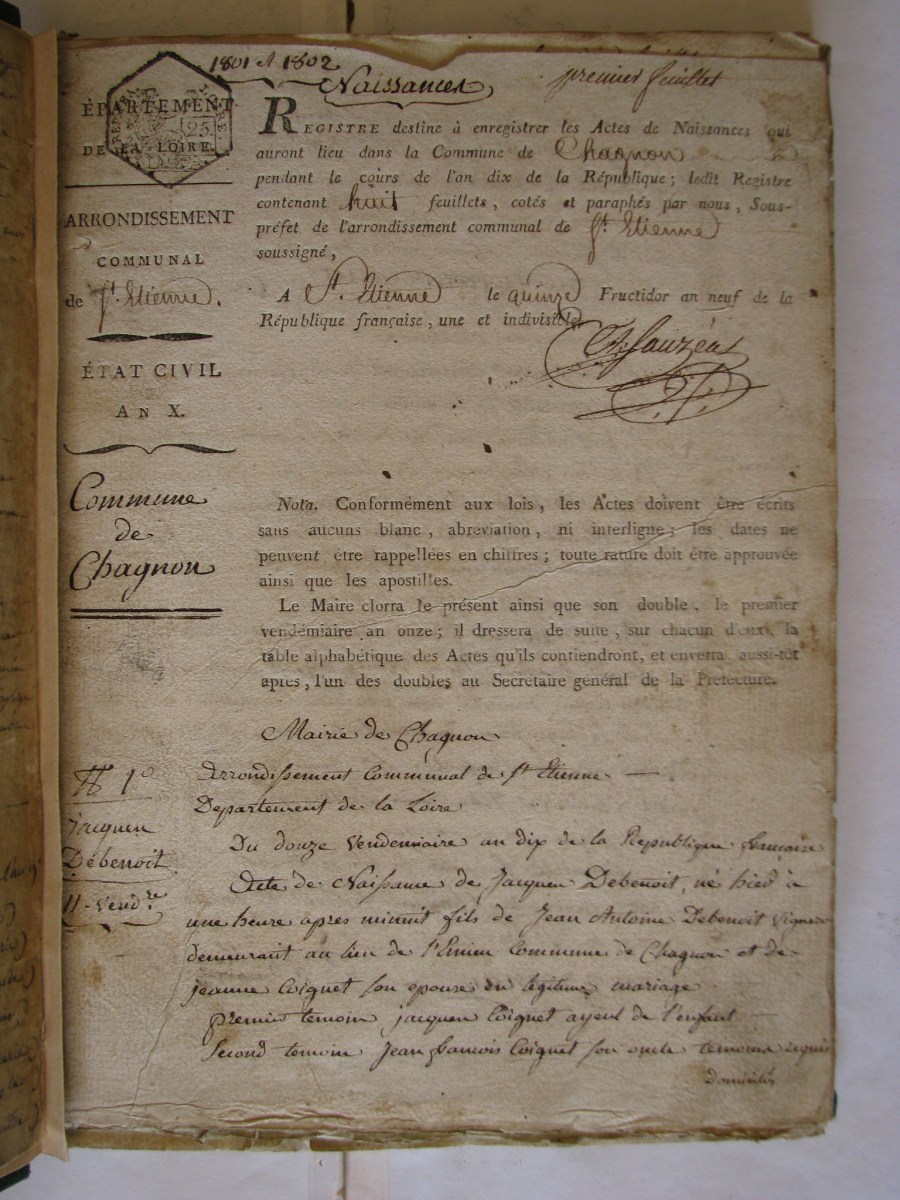 1801 et 1802
Naissances
premier feuillet
ÉPARTEMENT
DE LA LOIRE.
25
ARRONDISSEMENT
COMMUNAL
de St. Etienne.
ÉTAT CIVIL
AN X.
Commune
de
Chagnon
REGISTRE destiné à enregistrer les Actes de Naissances qui
auront lieu dans la Commune de Chagnon
pendant le cours de l'an dix de la République; ledit Registre
contenant huit feuillets, cotés et paraphés par nous, Sous-
préfet de l'arrondissement communal de St. Etienne
soussigné,
A St. Etienne le quinze Fructidor an neuf de la
République française, une et indivisible.
Sauzéa
Nota. Conformément aux lois, les Actes doivent être écrits
sans aucuns blanc, abreviation, ni interligne; les dates ne
peuvent être rappellées en chiffres; toute rature doit être approuvée
ainsi que les apostilles.
Le Maire clorra le présent ainsi que son double, le premier
vendémiaire an onze; il dressera de suite, sur chacun d'eux, la
table alphabétique des Actes qu'ils contiendront, et enverra aussi-tôt
après, l'un des doubles au Secrétaire général de la Préfecture.
Mairie de Chagnon
Arrondissement Communal de St Etienne
Departement de la Loire
N 1o
jacques
Debenoit
11 Vendre
Du douze Vendemiaire an dix de la Republique francaise
Acte de Naissance de Jacques Debenoit, né hier à
une heure apres minuit fils de Jean Antoine Debenoit Vigneron
demeurant au lieu de Commune de Chagnon et de
jeanne Coignet son epouse en légitime mariage
premier temoin jacques Coignet ayeul de l'enfant
Second temoin Jean francois Coignet son oncle temoins requis
domiciliés